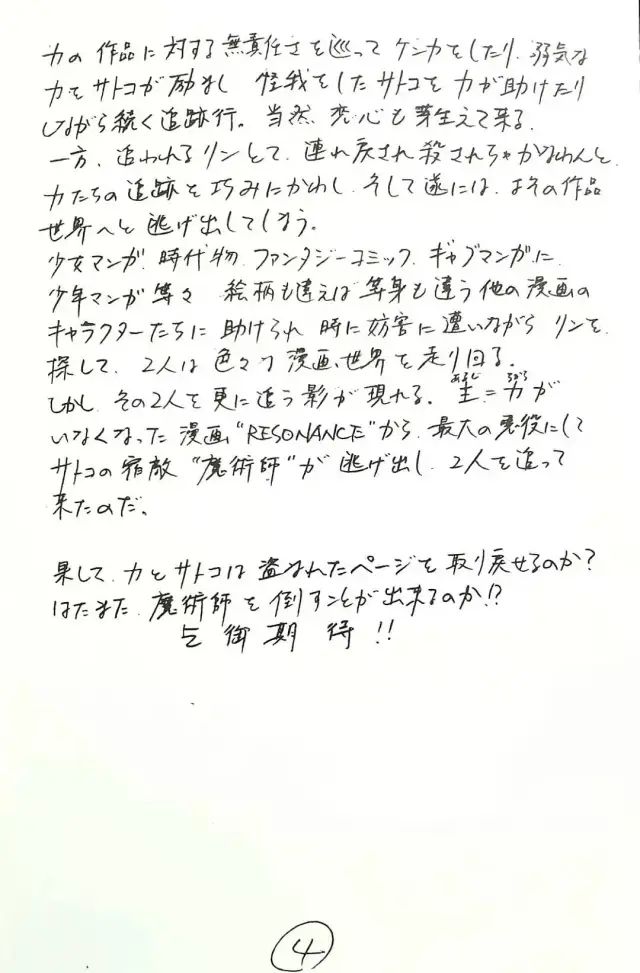 力の作品に対する無責任さを巡ってケンカをしたり、弱気な
力をサトコが励まし 怪我をしたサトコを力が助けたり
しながら続く追跡行。当然 恋心も芽生えて来る。
一方、追われるリンとて、連れ戻され殺されちゃかなわんと、
力たちの追跡を巧みにかわし、そして遂には、よその作品
世界へと逃げ出してしまう。
少女マンガ、時代物、ファンタジーコミック、ギャグマンガに
少年マンガ等々 絵柄も違えば等身も違う他の漫画の
キャラクターたちに助けられ 時に妨害に遭いながら リンを
探して、2人は色々な漫画世界を走り回る。
しかし、その2人を更に追う影が現れる。主=力が
あるじ
いなくなった漫画“RESONANCE”から、最大の悪役にして
サトコの宿敵“魔術師”が逃げ出し、2人を追って
来たのだ。
果して、力とサトコは盗まれたページを取り戻せるのか?
はたまた、魔術師を倒すことが出来るのか!?
乞御期待!!
4